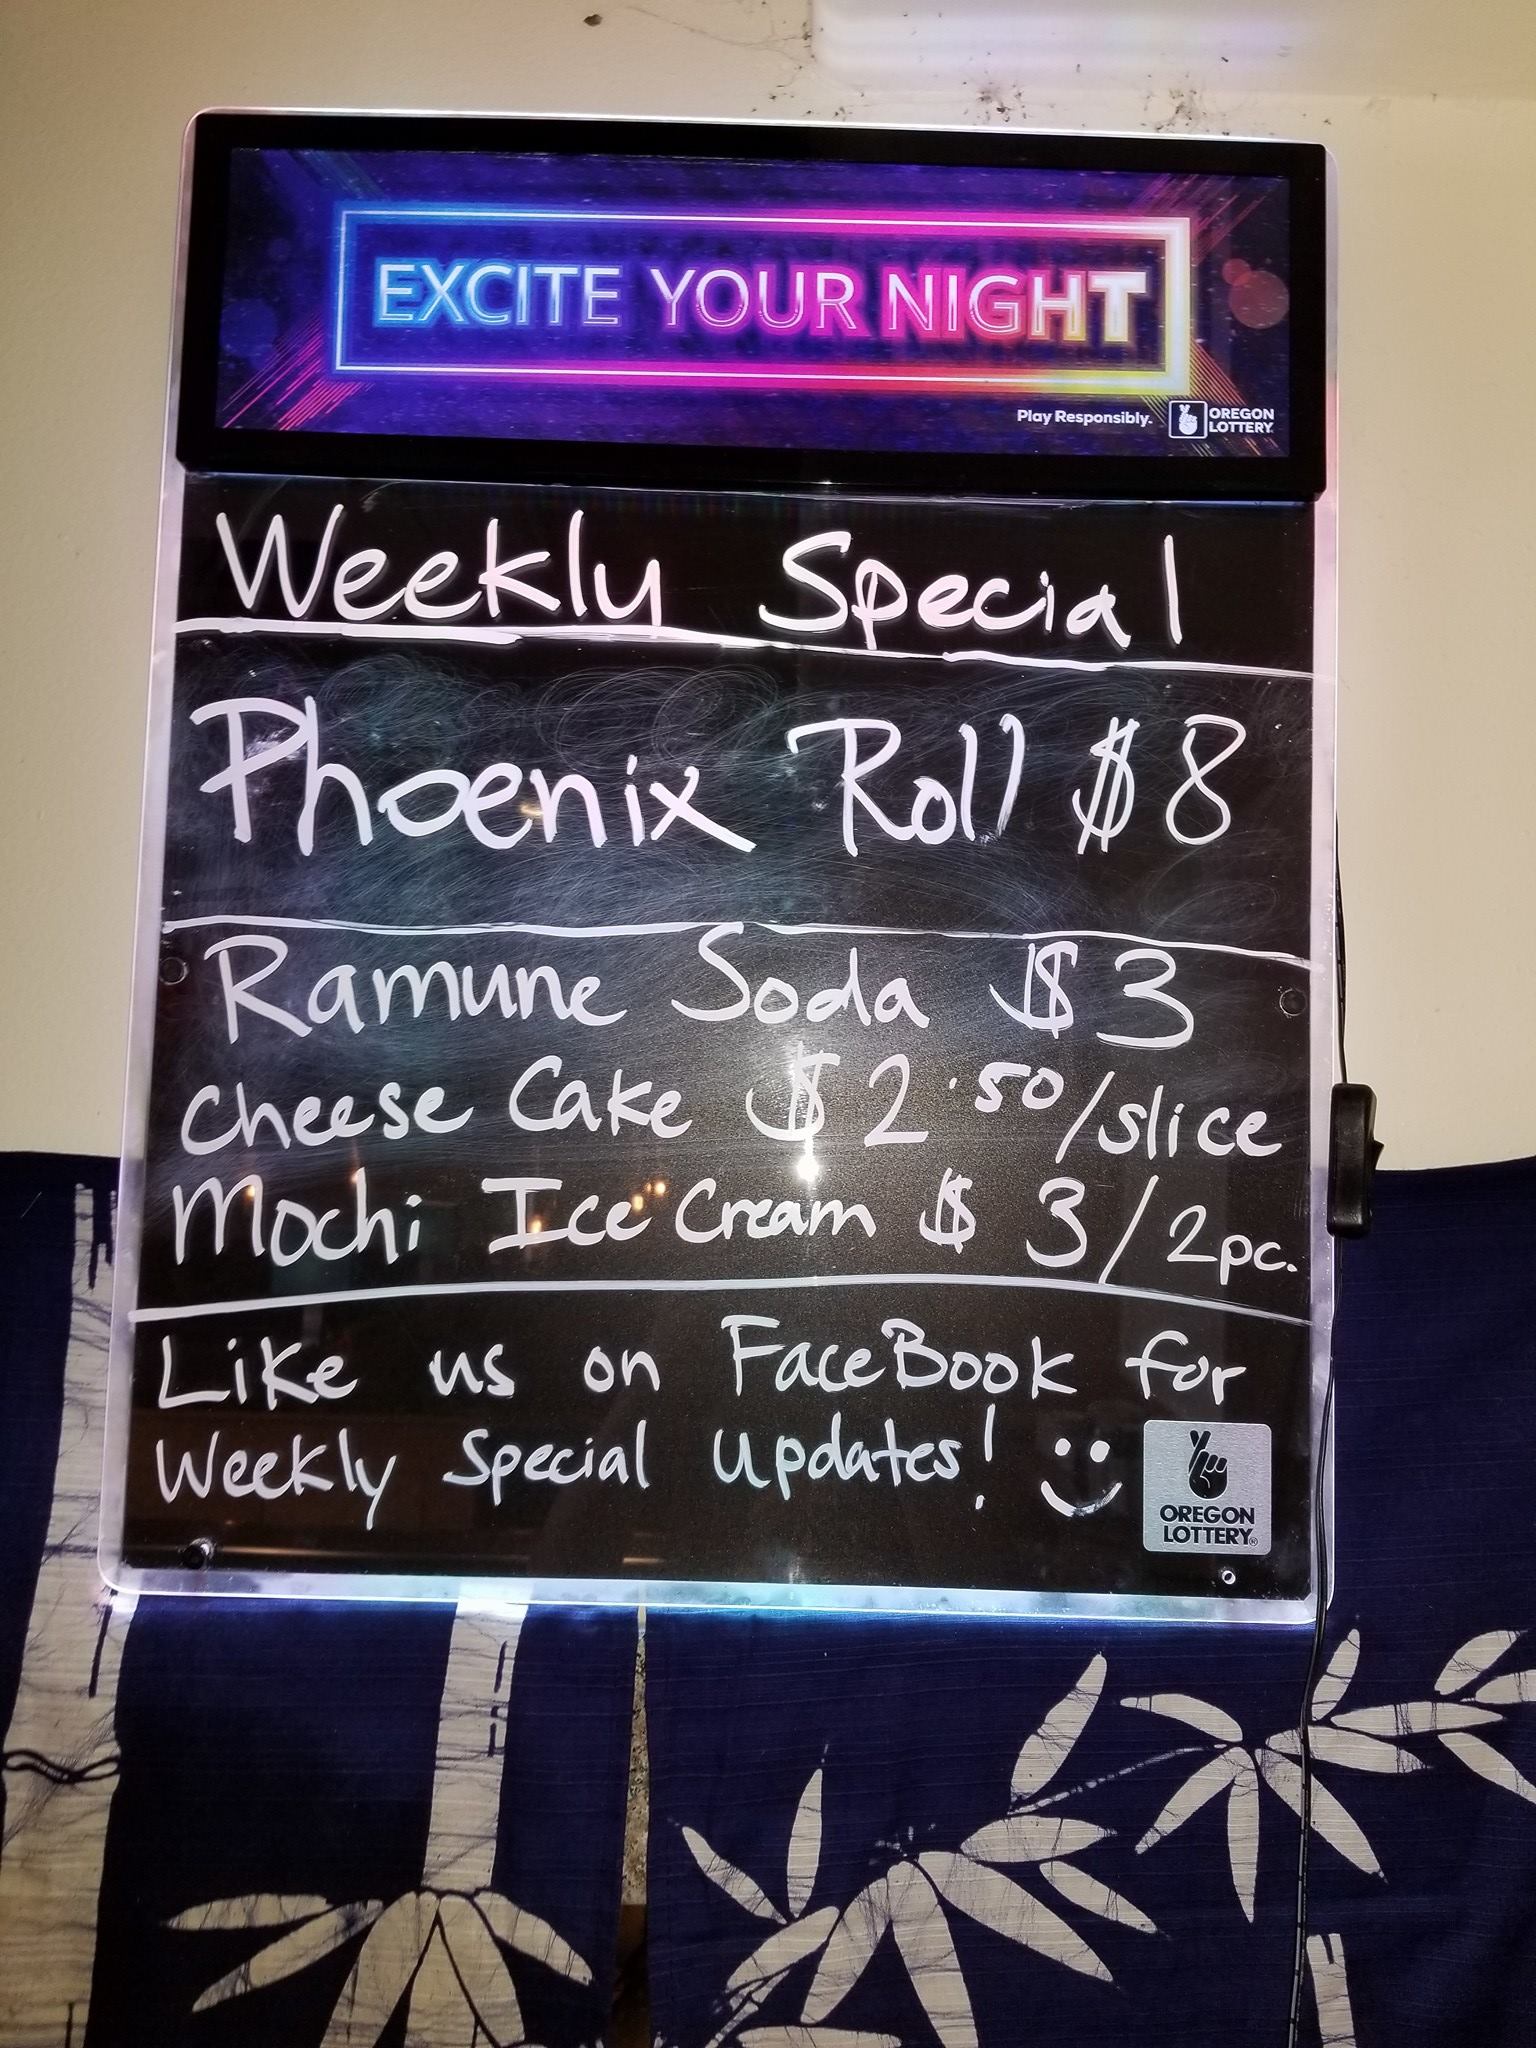 EXCITE YOUR NIGHT
Play Responsibly.
OREGON
LOTTERY
Weekly Special
Phoenix Roll $8
Ramune Soda $3
Cheese Cake $2.50/slice
Mochi Ice Cream $3/2pc.
Like us on FaceBook for
Weekly Special Updates! :)
OREGON
LOTTERY®